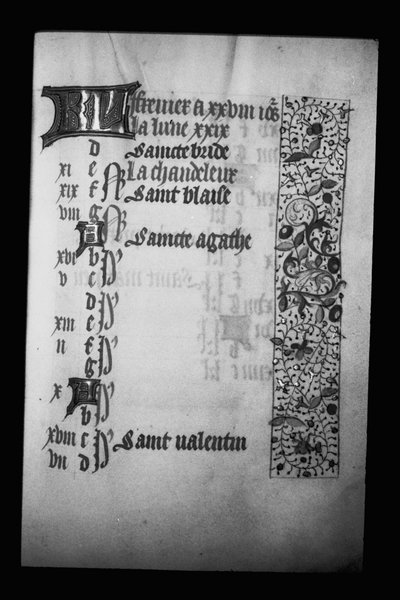 KL feurier a xxviii iors
La lune xxix
d Saincte bride
xi e N La chandeleur
xix f Saint blaise
viii g N
A Saincte agathe
xvi b
v c
d
xiii e
ii f
g
x A
b
xviii c Saint valentin
vii d